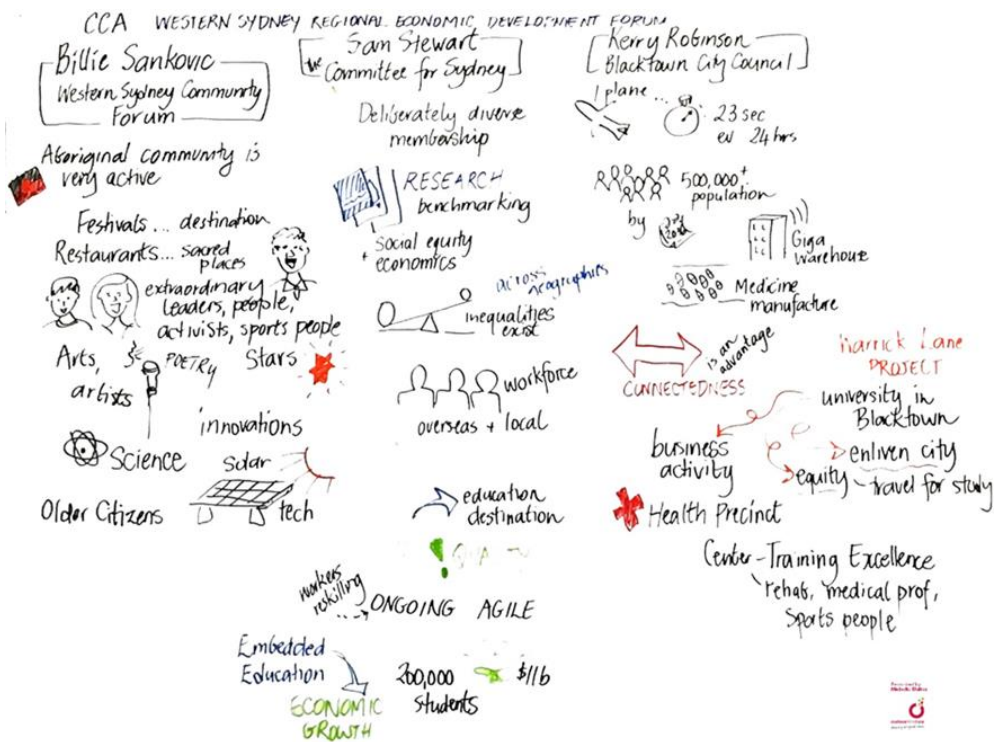 CCA WESTERN SYDNEY REGIONAL ECONOMIC DEVELOPMENT FORUM
Billie Sankovic
Western Sydney Community
Forum
Aboriginal community is
very active
Festivals... destination
Restaurants... sacred
places
extraordinary
leaders, people,
activists, sports people
Arts,
artists
POETRY
Stars
innovations
Science
Solar
tech
Older Citizens
Sam Stewart
the Committee for Sydney
Deliberately diverse
membership
RESEARCH
benchmarking
+ Social equity
economics
across geographies
inequalities
exist
workforce
overseas + local
education
destination
workers
reskilling
ONGOING AGILE
Embedded
Education
ECONOMIC
GROWTH
200,000
Students
$11b
Kerry Robinson
Blacktown City Council
1 plane...
23 sec
ev 24 hrs
500,000+
population
by
Giga
warehouse
Medicine
manufacture
CONNECTEDNESS
is an
advantage
Warrick Lane
PROJECT
university in
Blacktown
business
activity
enliven city
equity - travel for study
Health Precinct
Center-Training Excellence
rehab, medical prof,
Sports people